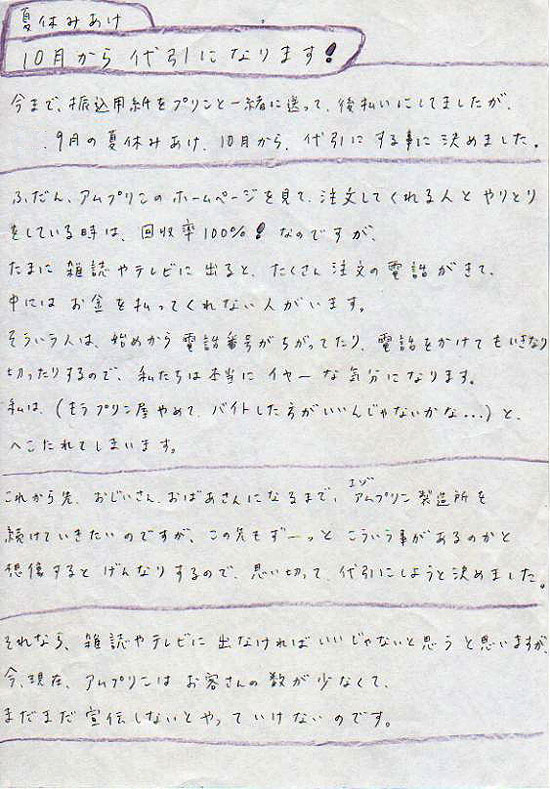 夏休みあけ
10月から 代引になります!
今まで、振込用紙をプリンと一緒に送って、後払いにしてましたが、
9月の夏休みあけ、10月から、代引にする事に決めました。
ふだん、アムプリンのホームページを見て、注文してくれる人とやりとり
をしている時は、回収率100%! なのですが、
たまに雑誌やテレビに出ると、たくさん注文の電話がきて、
中には お金を払ってくれない人がいます。
そういう人は、始めから電話番号がちがってたり、電話をかけてもいきなり
切ったりするので、私たちは本当にイヤーな気分になります。
私は、(もうプリン屋やめて、バイトした方がいいんじゃないかな...)と、
へこたれてしまいます。
これから先、おじいさん、おばあさんになるまで、アムプリン製造所を
エゾ
続けていきたいのですが、この先もずーーっと こういう事があるのかと
想像すると げんなりするので、思い切って、代引にしようと決めました。
それなら、雑誌やテレビに出なければいいじゃないと思うと思いますが、
今、現在、アムプリンは お客さんの数が少なくて、
まだまだ宣伝しないとやっていけないのです。